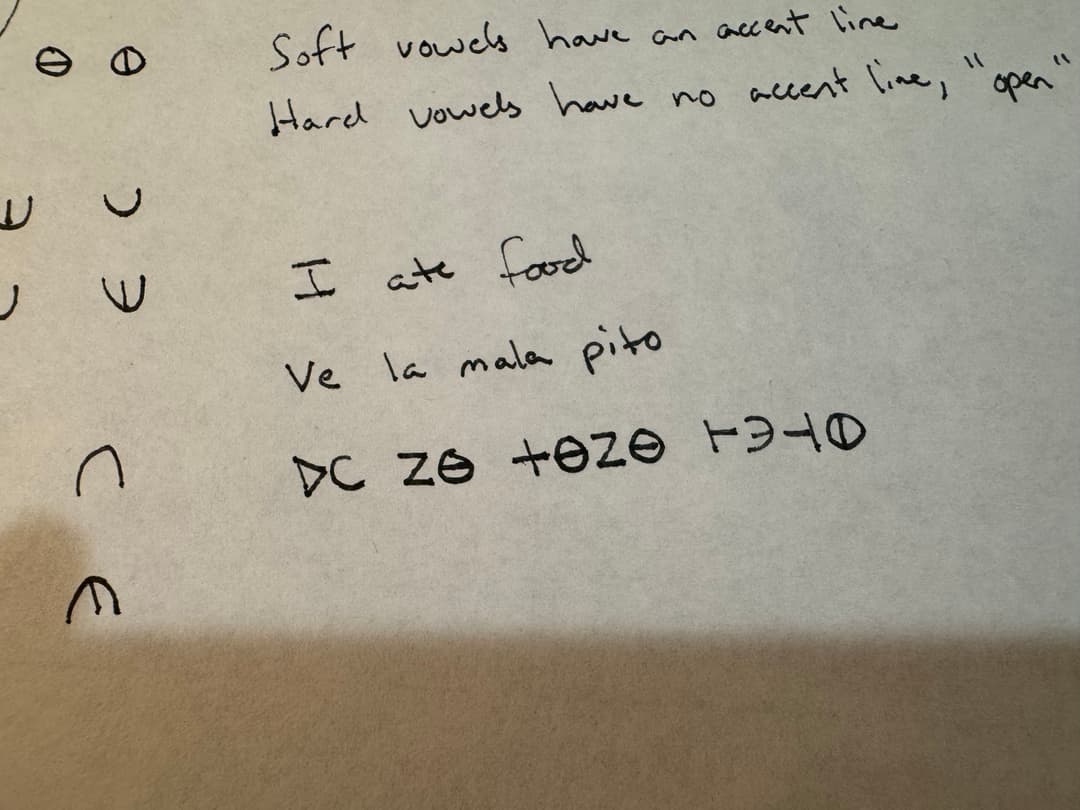 Ɵ ⦶ Soft vowels have an accent line
Hard vowels have no accent line, "open"
I ate food
Ve la mala pito